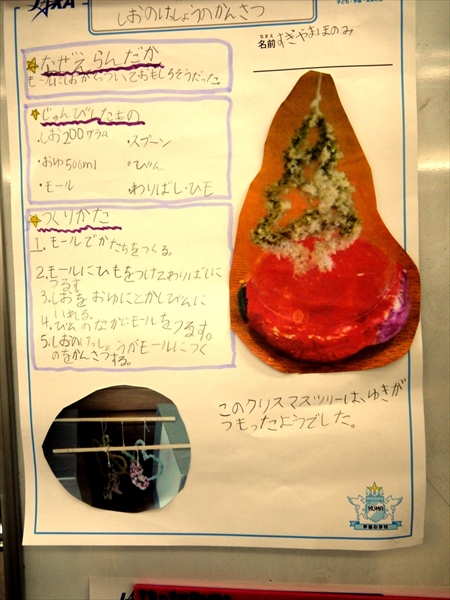 しおのけっしょうのかんさつ
名前 すぎやまほのみ
なぜえらんだか
モールにしおがくっついておもしろそうだった
じゅんびしたもの
・しお200グラム ・スプーン
・おゆ500ml ・びん
・モール ・わりばし・ひも
つくりかた
1. モールでかたちをつくる。
2. モールにひもをつけてわりばしに
つるす
3. しおをおゆにとかしびんに
いれる。
4. びんのなかにモールをつるす。
5. しおのけっしょうがモールにつく
のをかんさつする。
このクリスマスツリーは、ゆきが
つもったようでした。
YUMA